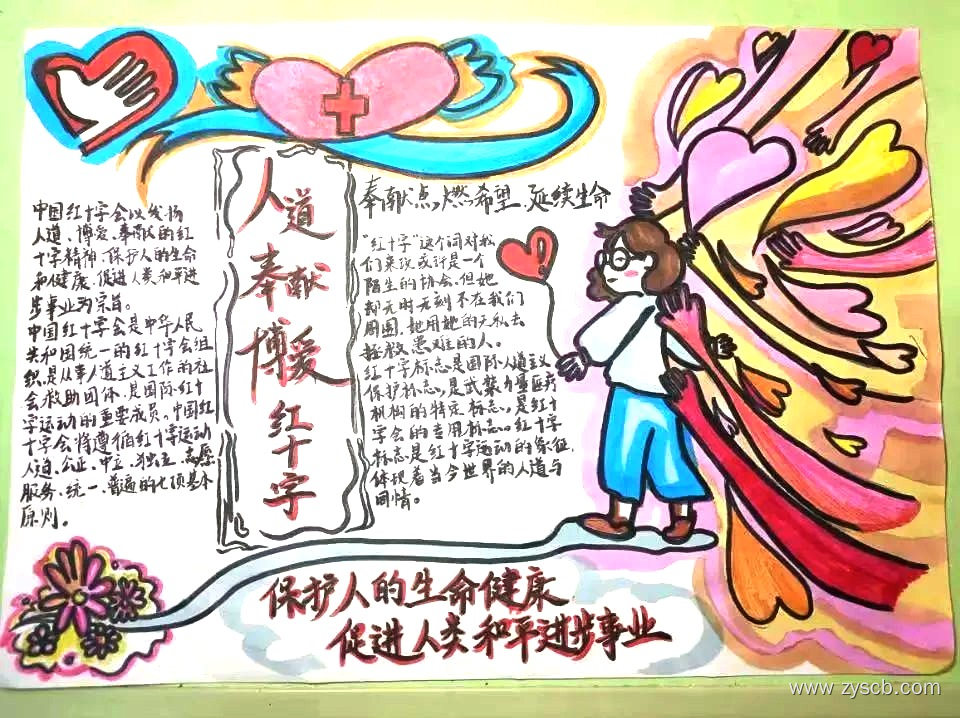 人道
奉献
博爱
红
十
字
中国红十字会以发扬
人道、博爱、奉献的红
十字精神,保护人的生命
和健康,促进人类和平进
步事业为宗旨。
中国红十字会是中华人民
共和国统一的红十字会组
织,是从事人道主义工作的社
会救助团体,是国际红十
字运动的重要成员。中国红
十字会将遵循红十字运动
人道、公正、中立、独立、志愿
服务、统一、普遍的七项基本
原则。
奉献点燃希望 延续生命
“红十字”这个词对于我
们来说或许是一个
陌生的协会,但她
却无时无刻不在我们
周围,她用她的无私去
拯救患难的人。
红十字标志是国际人道主义
保护标志,是武装力量医疗
机构的特定标志,是红十
字会的专用标志。红十字
标志是红十字运动的象征,
体现着当今世界的人道与
同情。
保护人的生命健康
促进人类和平进步事业
www.zyscb.com